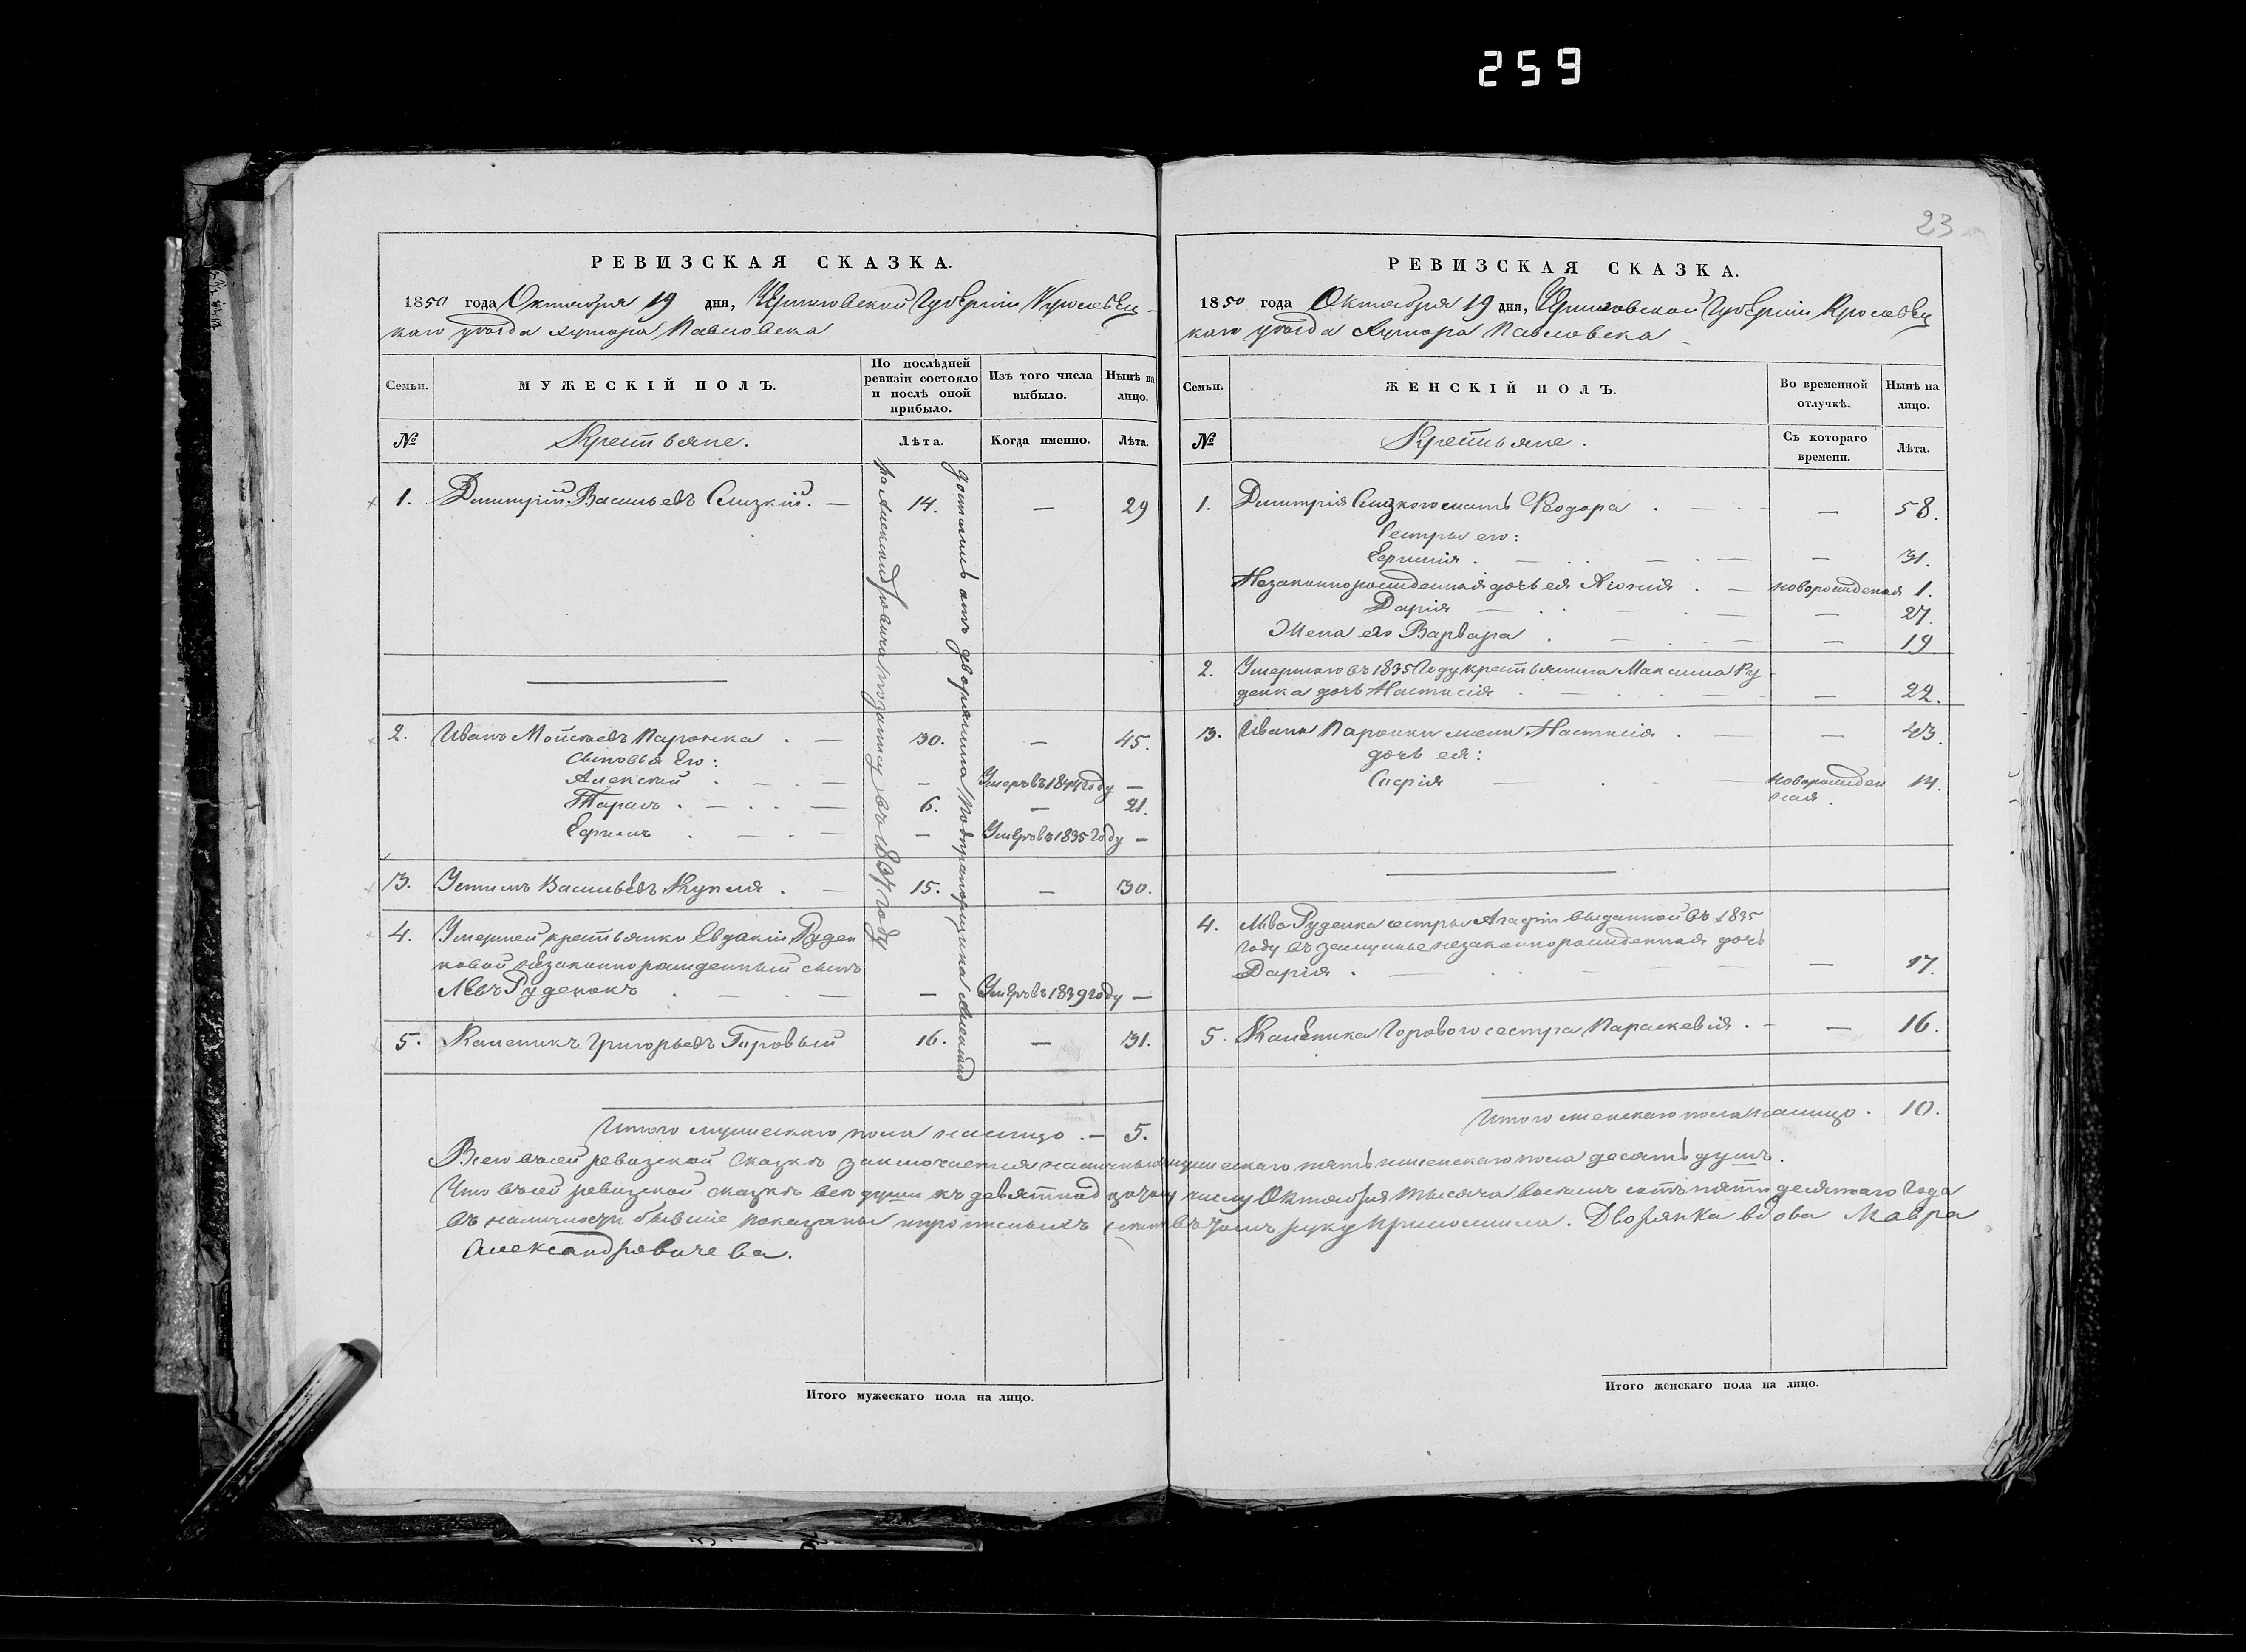 259
23
РЕВИЗСКАЯ СКАЗКА.
1850 года Октября 19 дня, Черниговской Губерніи Кролевец-
каго уѣзда хутора Павловска
Семьи.
МУЖЕСКІЙ ПОЛЪ.
По послѣдней ревизіи состояло и послѣ оной прибыло.
Изъ того числа выбыло.
Нынѣ на лицо.
№
Крестьяне.
Лѣта.
Когда именно.
Лѣта.
1. Дмитрій Васильевъ Слизкій. — 14. — 29
2. Иванъ Мойсѣевъ Паронка . — 30. — 45.
Сыновья Его:
Алексѣй . — . — — Умеръ въ 1844 году —
Тарасъ . — . . — 6. — 21.
Ефимъ . — . — — Умеръ въ 1835 Году —
3. Устимъ Васильевъ Купля . — 15. — 30.
4. Умершей крестьянки Евдокіи Руден
ковой незаконнорожденный сынъ
Левъ Руденокъ . — . — — Умеръ въ 1839 году —
5. Калѣникъ Григорьевъ Горовый 16. — 31.
Достались отъ дворянина Подпрапорщика Александ
ра Александровича по запису въ 1837 году
Итого мужескаго пола налицо . — 5.
РЕВИЗСКАЯ СКАЗКА.
1850 года Октября 19 дня, Черниговской Губерніи Кролевец
каго уѣзда Хутора Павловска
Семьи.
ЖЕНСКІЙ ПОЛЪ.
Во временной отлучкѣ.
Нынѣ на лицо.
№
Крестьяне.
Съ котораго времени.
Лѣта.
1. Дмитрія Слизкого мать Ѳеодора . — . - — 58.
Сестры его:
Ефимія . — . . — . — — 31.
Незаконнорожденная дочь ея Агафія . — новорожденая 1.
Дарія — . . — . — — 27.
Жена его Варвара . — . — — 19
2. Умершаго въ 1835 Году крестьянина Максима Ру
денка дочь Настасія . — . — — — 22.
3. Ивана Паронки жена Настасія . — — 43.
дочь ея:
Софія — . — новорожден
ная . 14.
4. Льва Руденка сестры Агафіи выданной въ 1835
году въ замужье незаконнорожденная дочь
Дарія . — . . — — — 17.
5. Калѣника Горового сестра Параскевія . - — 16.
Итого женскаго пола налицо . 10.
Всего въ сей ревизской Сказкѣ заключается наличныхъ мужескаго пять женскаго пола десять душъ.
Что въ сей ревизской сказкѣ все души къ девятнадцатому числу Октября тысяча восемь сотъ пятидесятаго года
въ наличности бывшіе показаны и прописныхъ нетъ въ томъ руку приложила. Дворянка вдова Мавра
Александровичева.
Итого мужескаго пола на лицо.
Итого женскаго пола на лицо.